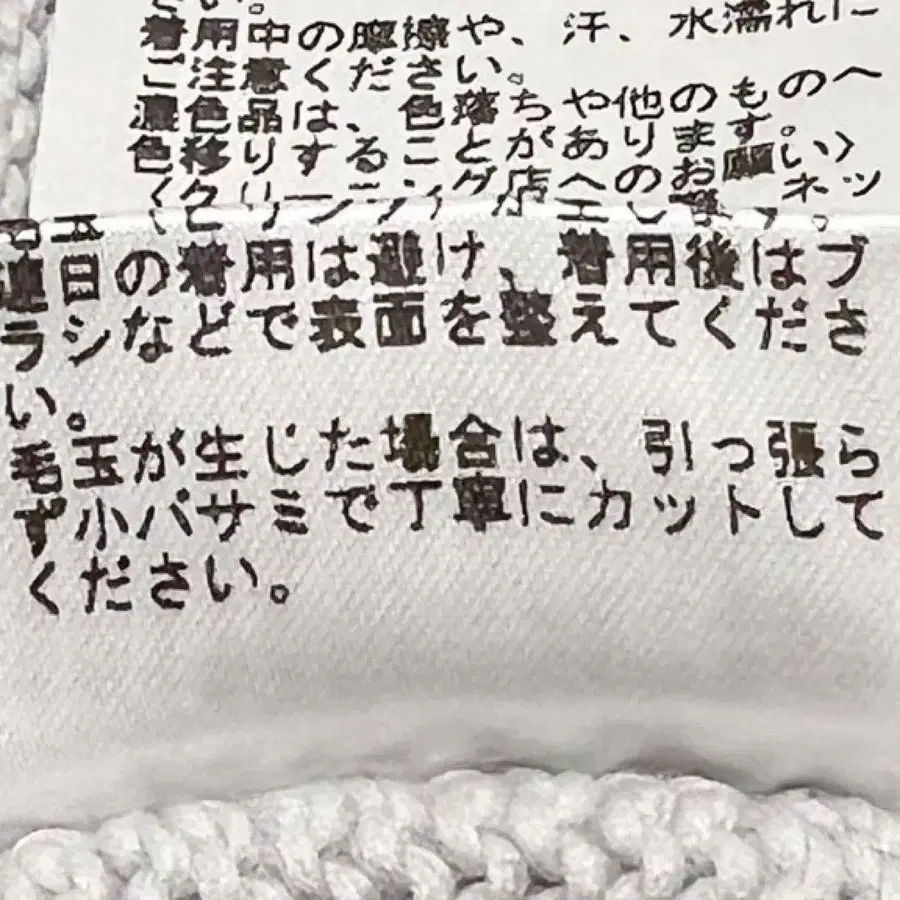 さい。
着用中の摩擦や、汗、水濡れに
ご注意ください。
濃色品は、色落ちや他のものへ
色移りすることがあります。
クリーニング店へのお願い〉
連日の着用は避け、着用後はブ
ラシなどで表面を整えてくださ
い。
毛玉が生じた場合は、引っ張ら
ず小バサミで丁寧にカットして
ください。